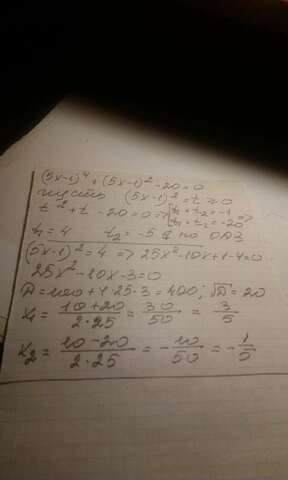 (5x-1)⁴ + (5x-1)² - 20 = 0
пусть (5x-1)² = t ≥ 0
t² + t - 20 = 0 => [t₁ + t₂ = -1 =>
t₁ · t₂ = -20
t₁ = 4 t₂ = -5 ∉ по ОДЗ
(5x-1)² = 4 => 25x² - 10x + 1 - 4 = 0
25x² - 10x - 3 = 0
D = 100 + 4·25·3 = 400; √D = 20
x₁ = (10+20)/(2·25) = 30/50 = 3/5
x₂ = (10-20)/(2·25) = -10/50 = -1/5